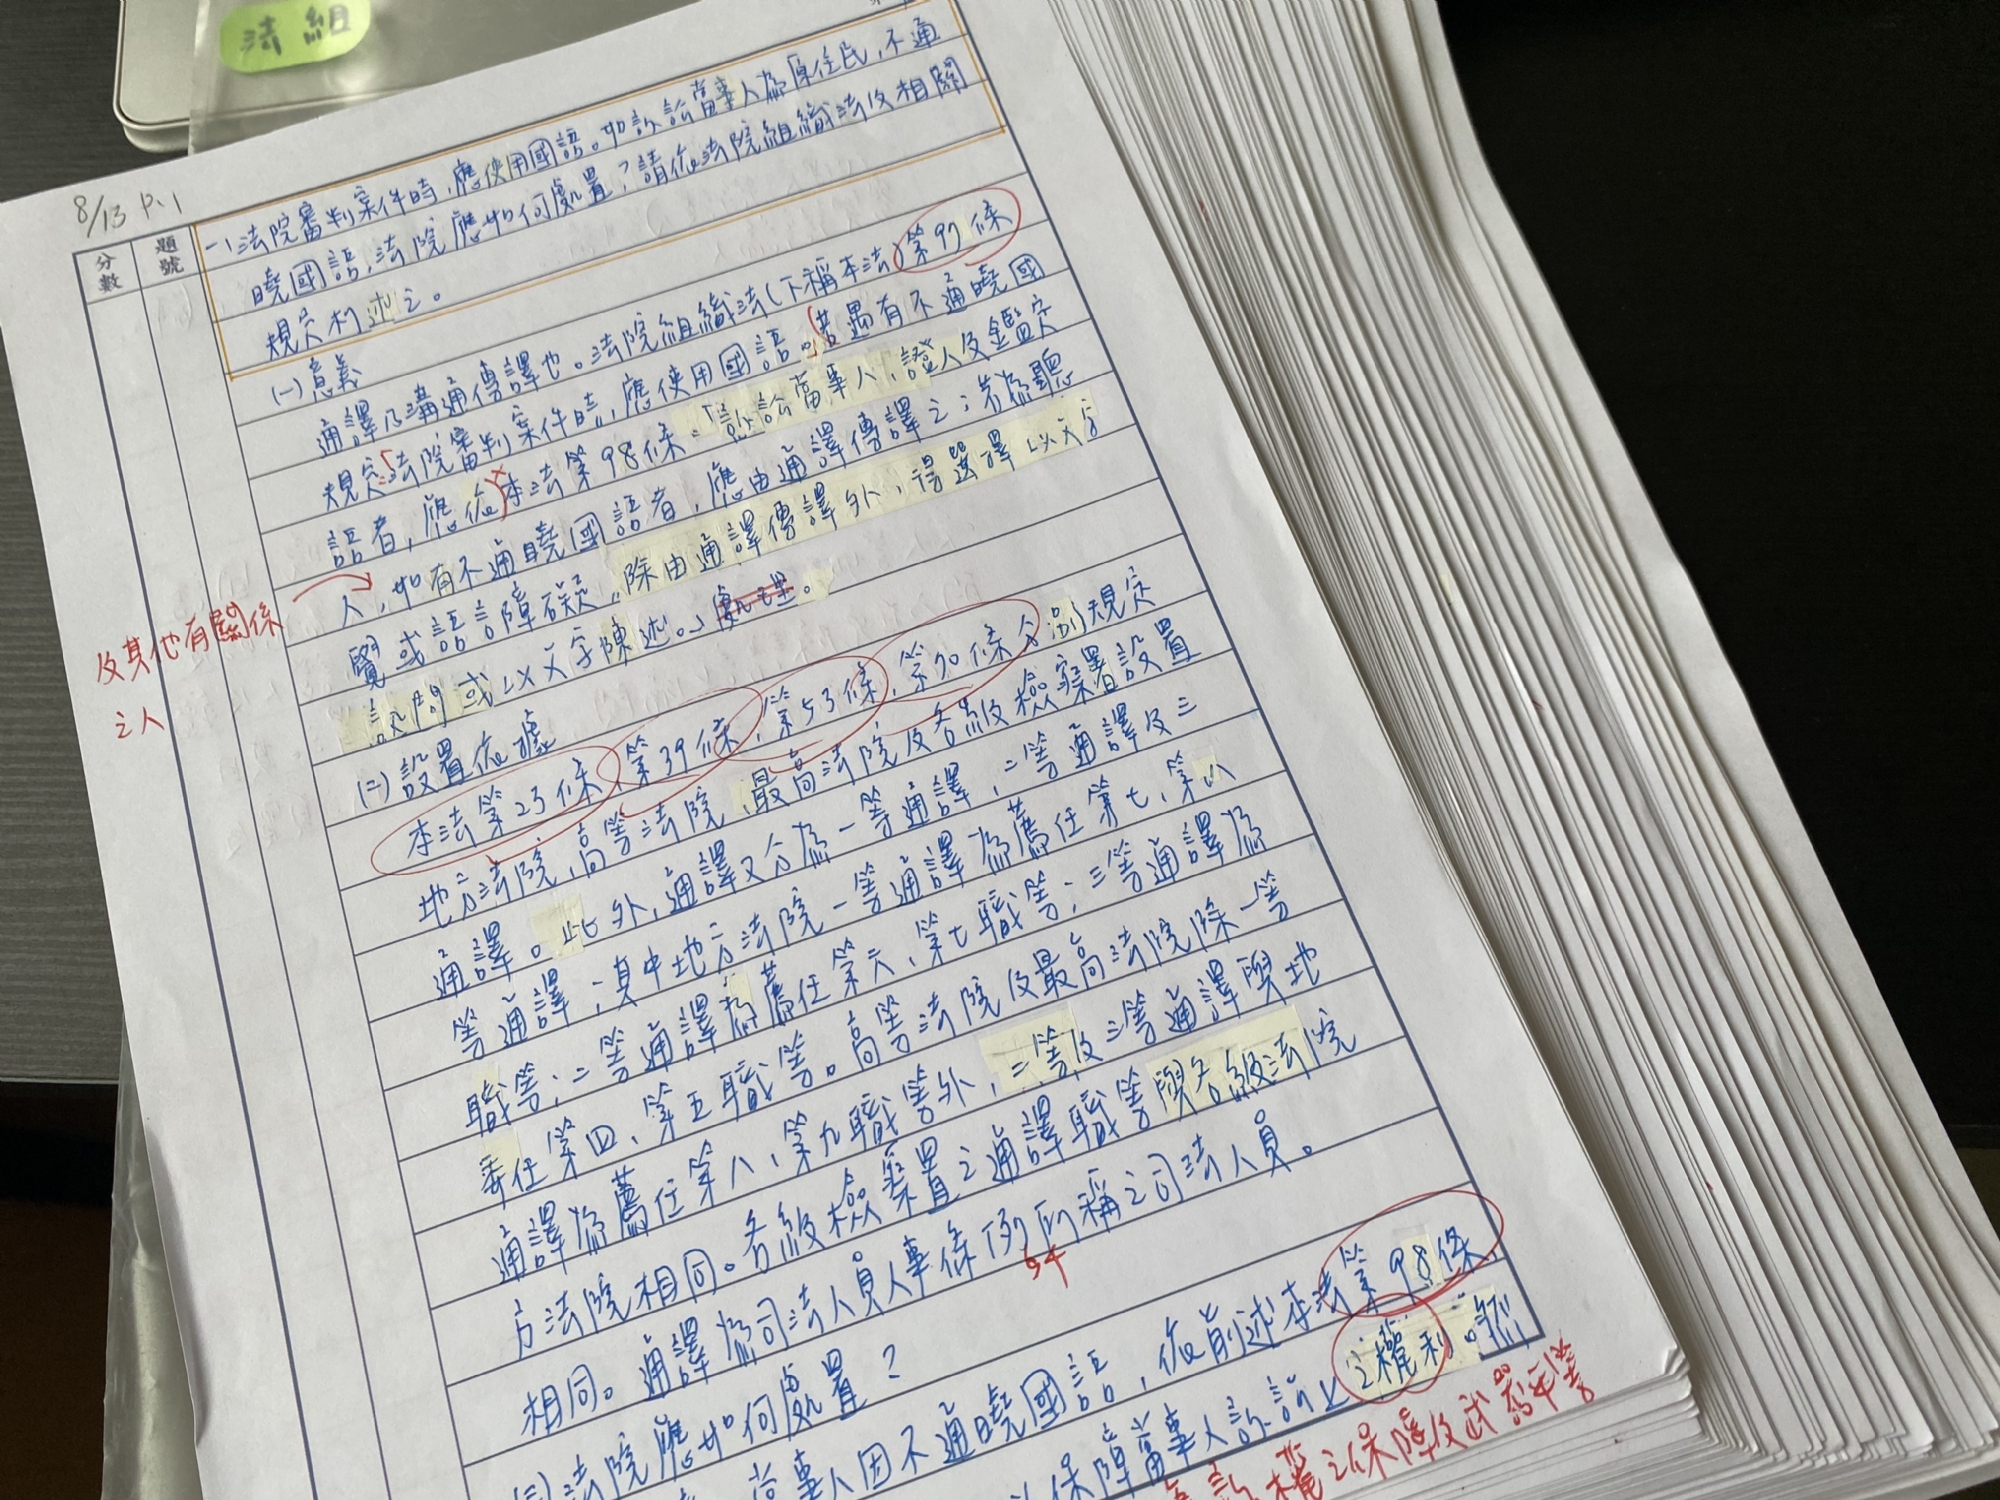 法組
8/13 P.1
分數
題號
一、法院審判案件時，應使用國語。如訴訟當事人為原住民，不通
曉國語，法院應如何處置？請依法院組織法及相關
規定利述之。
(一)意義
通譯乃溝通傳譯也。法院組織法(下稱本法)第97條
規定法院審判案件時，應使用國語。若遇有不通曉國
語者，應依本法第98條：「訴訟當事人、證人及鑑定
人，如有不通曉國語者，應由通譯傳譯之；若為聽
及其他有關係
之人
覺或語言障礙，除由通譯傳譯外，得選擇以文字
訊問或以文字陳述。」處理。
(二)設置依據
本法第23條、第39條、第53條、第70條分別規定
地方法院、高等法院、最高法院及各級檢察署設置
通譯。此外，通譯又分為一等通譯，二等通譯及三
等通譯；其中地方法院一等通譯為薦任第七、第八
職等；二等通譯為薦任第六、第七職等；三等通譯為
委任第四、第五職等。高等法院及最高法院除一等
通譯為薦任第八、第九職等外，二等及三等通譯與地
方法院相同。各級檢察署之通譯職等與各級法院
相同。通譯為司法人員人事條例所稱之司法人員。
§4
(三)法院應如何處置？
當事人因不通曉國語，依前述本法第98條，
以保障當事人訴訟上之權利。
訴訟權之保障及武器平等